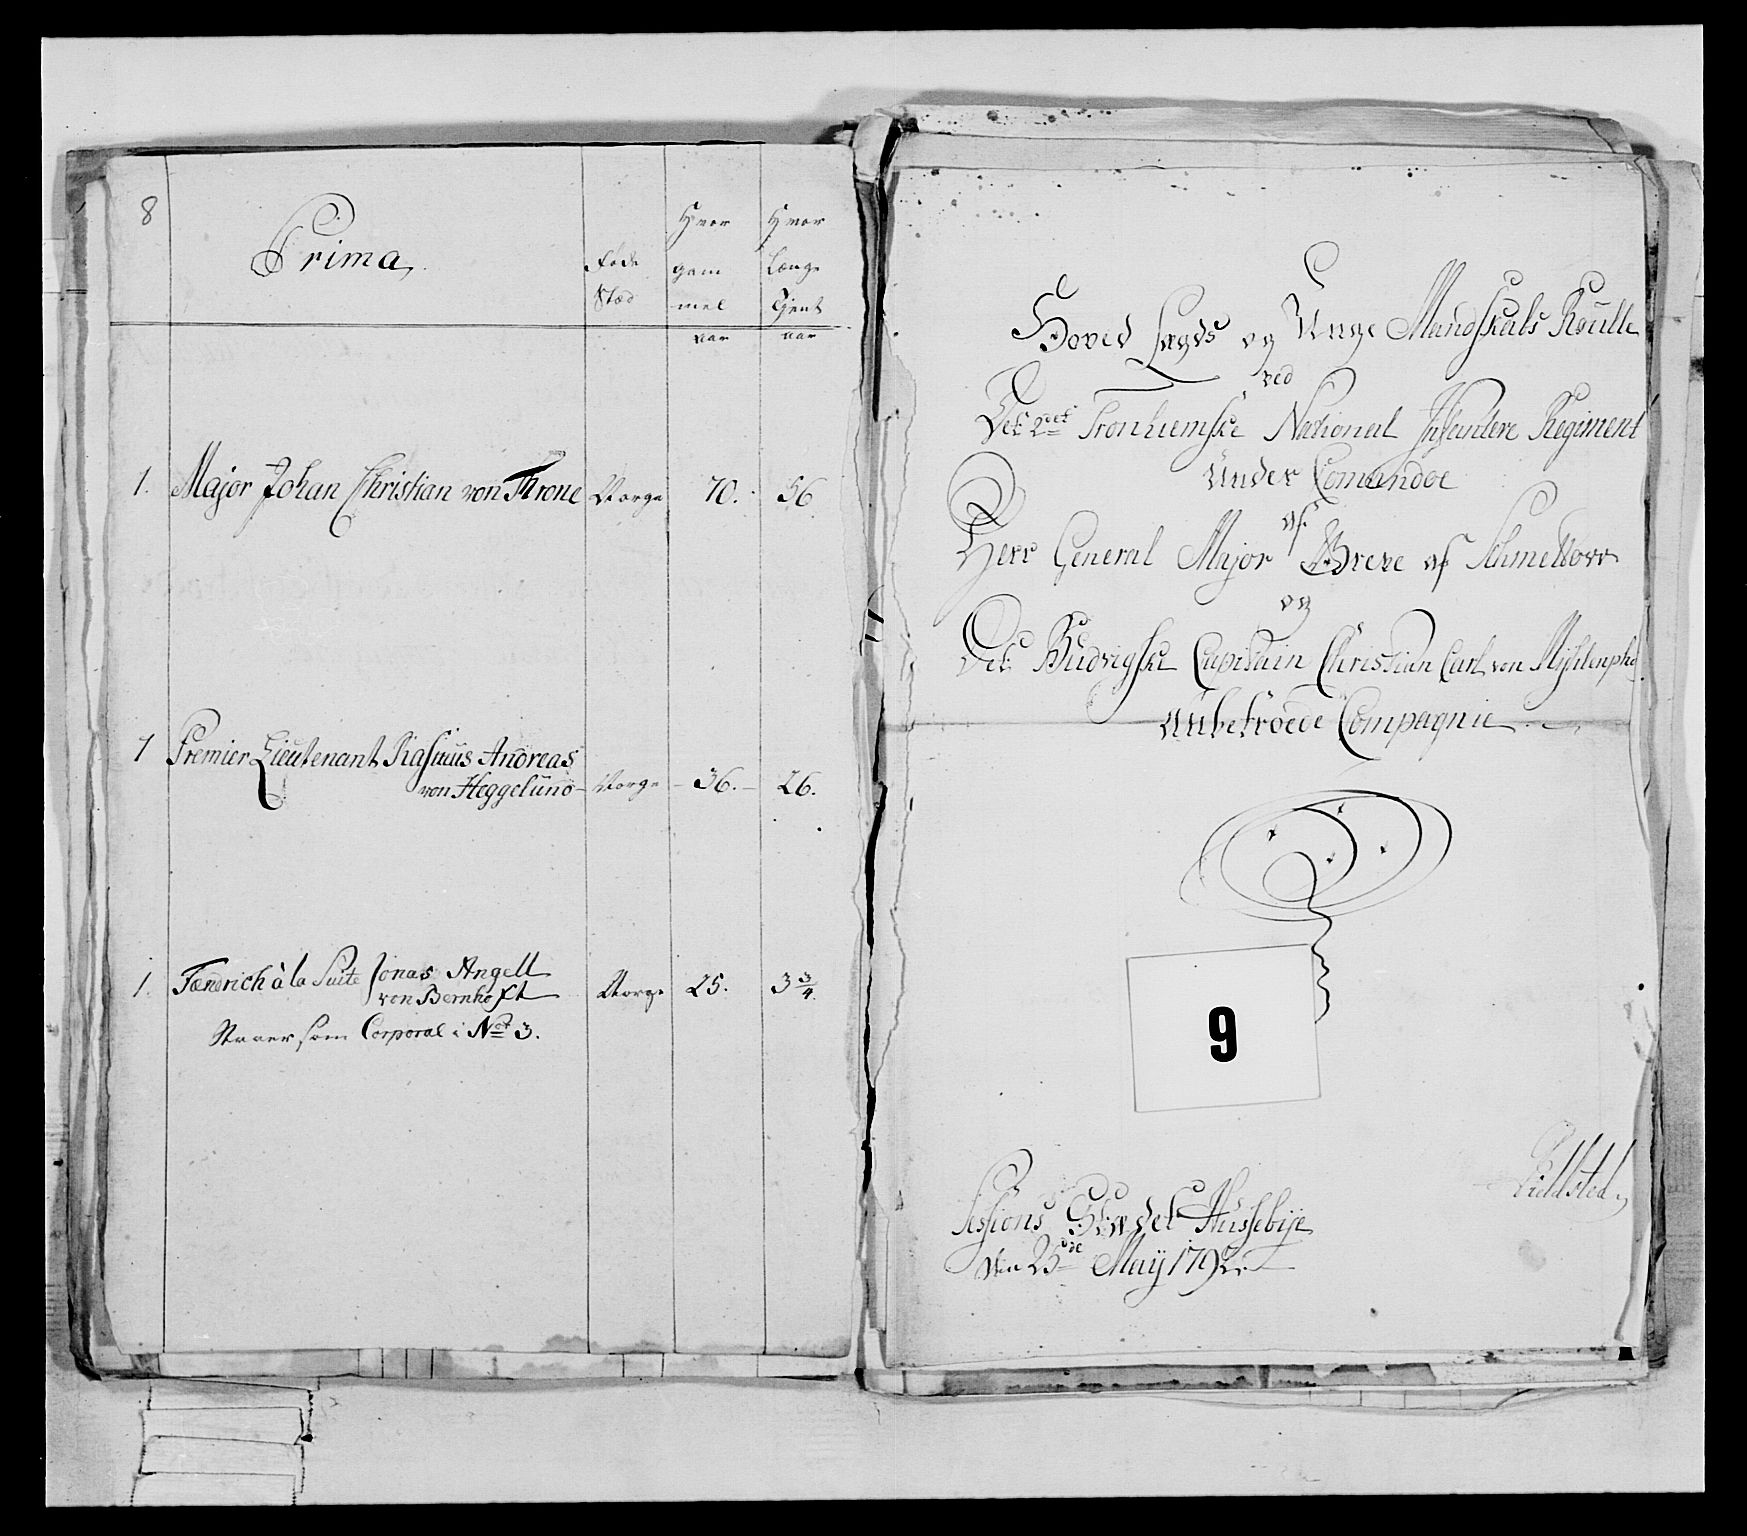 8
Prima
Føde
Stæd
Hvor
gam
mel
aar
Hvor
Længe
Tjent
aar
1. Major Johan Christian von Throne Norge 70. 56
1 Premier Lieutenant Rasmus Andreas
von Heggelund - Norge - 36. - 26.
1. Fændrich à la Suite Jonas Angell
von Bernhoft Norge 25. 3 3/4
Staaer som Corporal i No 3.
Hoved Lægds og Unge Mandskabs Roulle
ved
Det 2det Tronhiemske National Infanterie Regiment
Under Comandoe
af
Herr General Major Greve af Schmettow
og
Det Budvigske Capitain Christian Carl von
Anbetroede Compagnie
9
Sessions Stædet Hussebye
den 25de May 1792